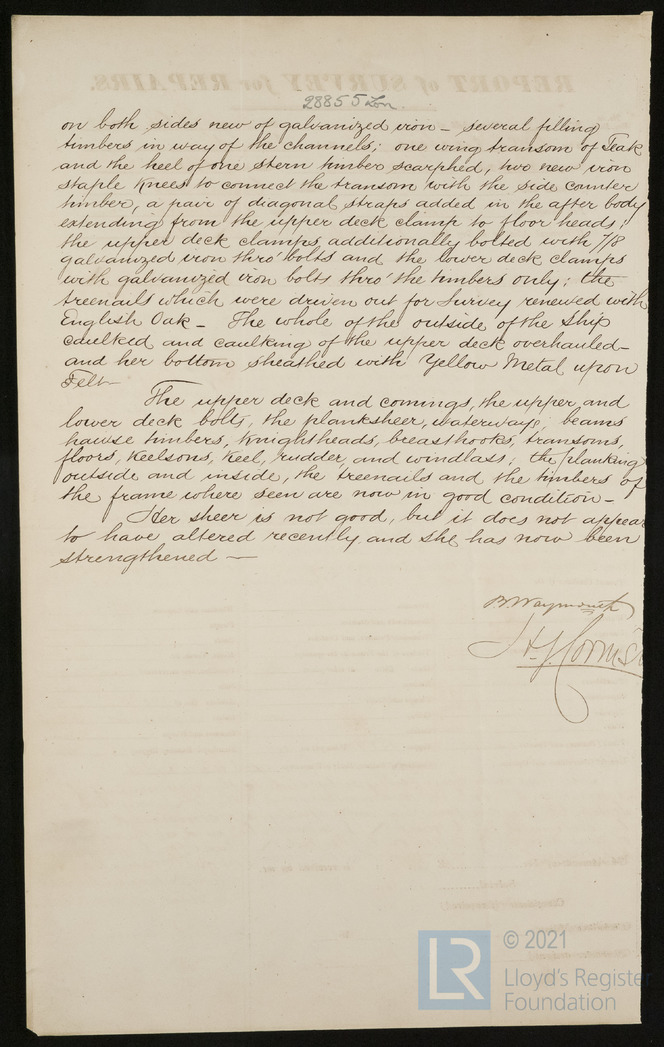 REPORT of SURVEY for REPAIRS.
28855 Lon.
on both sides new of galvanized iron – several filling
timbers in way of the channels; one wing transom of Teak
and the heel of one stern timber scarphed, two new iron
staple knees to connect the transom with the side counter
timber, a pair of diagonal straps added in the after body
extending from the upper deck clamp to floor heads;
the upper deck clamps additionally bolted with 7/8
galvanized iron thro' bolts and the lower deck clamps
with galvanized iron bolts thro' the timbers only; the
treenails which were driven out for Survey renewed with
English Oak – The whole of the outside of the Ship
caulked and caulking of the upper deck overhauled –
and her bottom sheathed with Yellow Metal upon
Felt –
The upper deck and comings, the upper and
lower deck bolts, the planksheer, waterways, beams
hawse timbers, knightheads, breasthooks, transoms,
floors, keelsons, keel, rudder, and windlass; the planking
outside and inside, the treenails and the timbers of
the frame where seen are now in good condition –
Her sheer is not good, but it does not appear
to have altered recently and she has now been
strengthened –
B. Waymouth
J H J Cornish
LR
© 2021
Lloyd's Register
Foundation